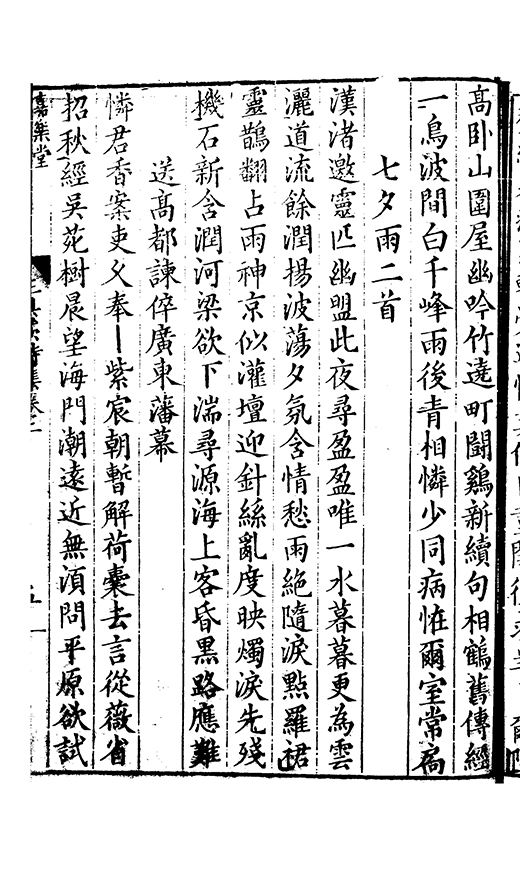 高臥山圍屋幽吟竹遶町闘鷄新續句相鶴舊傳經
一鳥波間白千峰雨後青相憐少同病怪爾室常扄
七夕雨二首
漢渚邀靈匹幽盟此夜尋盈盈唯一水暮暮更為雲
灑道流餘潤揚波蕩夕氛含情愁雨絶隨淚點羅裙
靈鵲翻占雨神京似灌壇迎針絲亂度映燭淚先殘
機石新含潤河梁欲下湍尋源海上客昏黒路應難
送高都諫倅廣東藩幕
憐君香案吏父奉丨紫宸朝暫解荷囊去言從薇省
招秋經吳苑樹晨望海門潮遠近無湏問平原欲試
嘉樂堂
詩集卷二
五